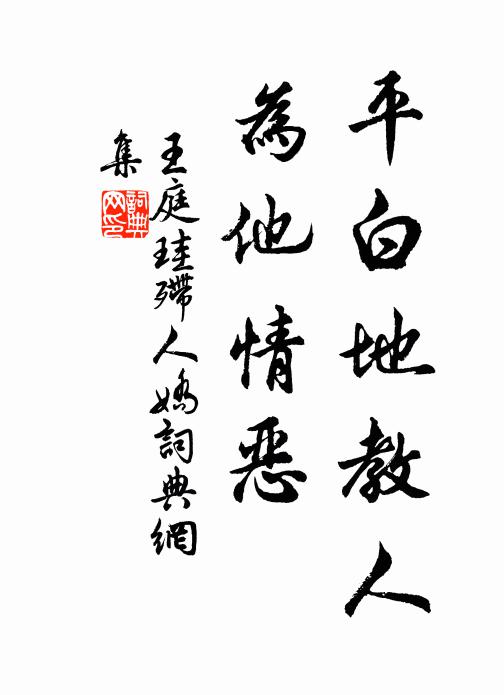 平白地教人
為他情惡
王庭珪殢人嬌詞典網
集
詞典
网印